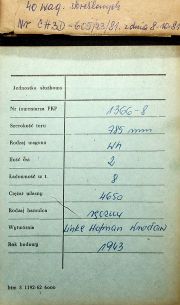 40 wag. skreślonych
Nr CH3D-605/93/81. z dnia 8.10.81
Jednostka służbowa
Nr inwentarza PKP 1366-8
Szerokość toru 785 mm
Rodzaj wagonu Wh
Ilość osi 2
Ładowność w t. 8
Ciężar własny 4650
Rodzaj hamulca ręczny
Wytwórnia Linke Hofman Wrocław
Rok budowy 1943